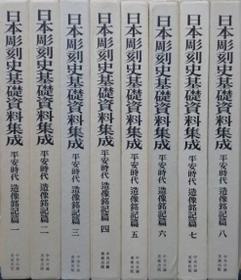 日本彫刻史基礎資料集成 平安時代 造像銘記篇 一
日本彫刻史基礎資料集成 平安時代 造像銘記篇 二
日本彫刻史基礎資料集成 平安時代 造像銘記篇 三
日本彫刻史基礎資料集成 平安時代 造像銘記篇 四
日本彫刻史基礎資料集成 平安時代 造像銘記篇 五
日本彫刻史基礎資料集成 平安時代 造像銘記篇 六
日本彫刻史基礎資料集成 平安時代 造像銘記篇 七
日本彫刻史基礎資料集成 平安時代 造像銘記篇 八